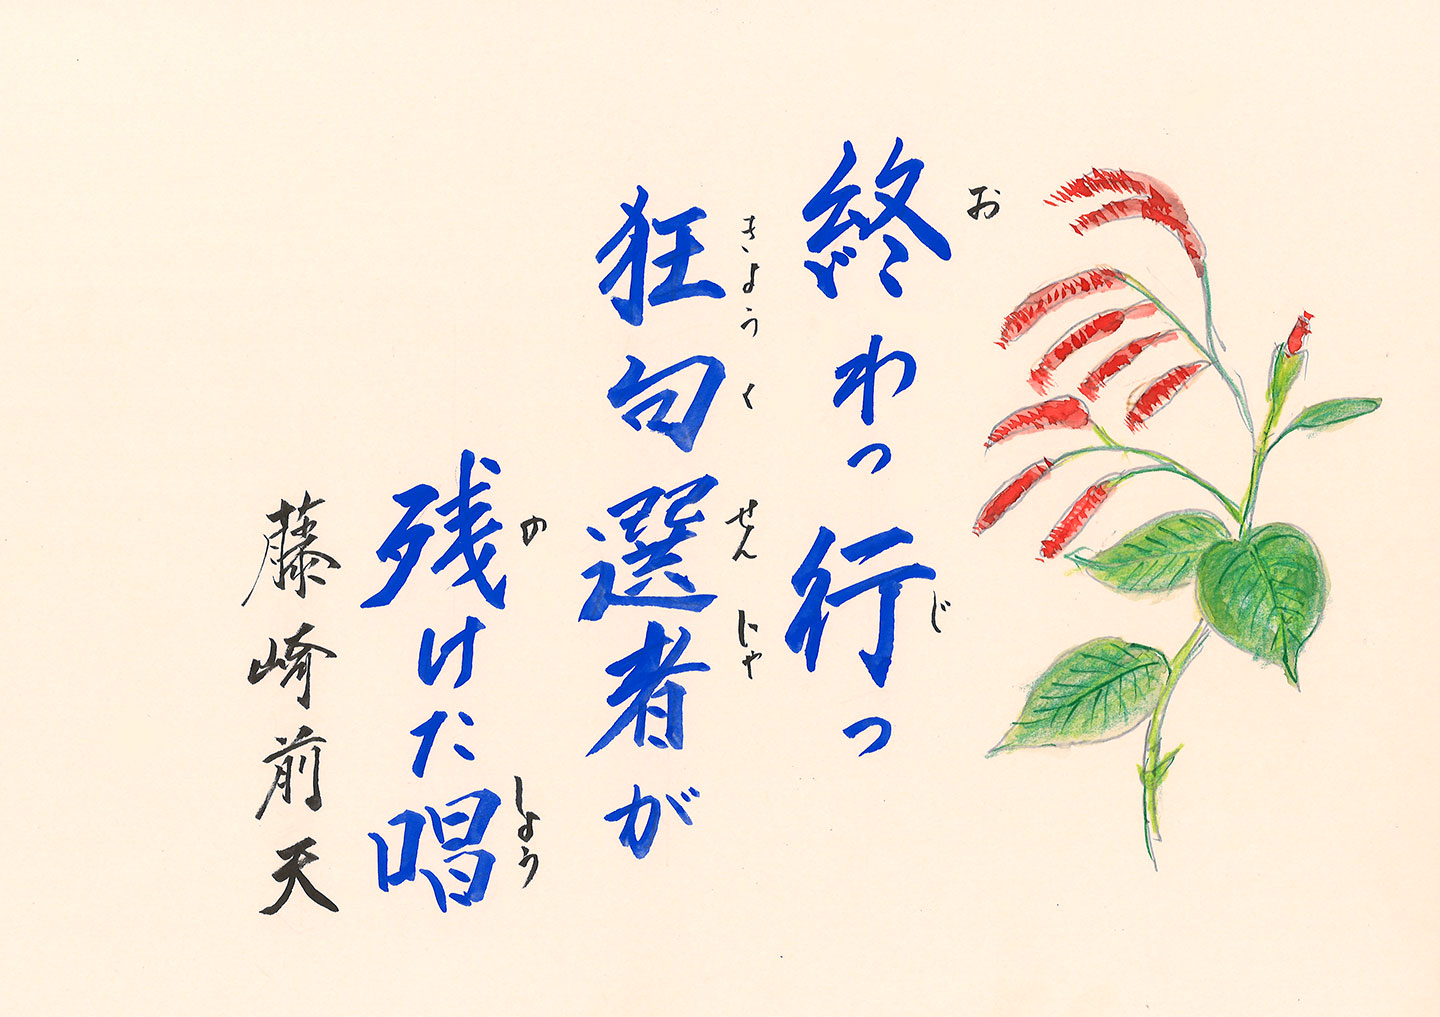 終わっ行っ
お
じ
狂句選者が
きょうくせんじゃ
残けた唱
の
しょう
藤崎前天